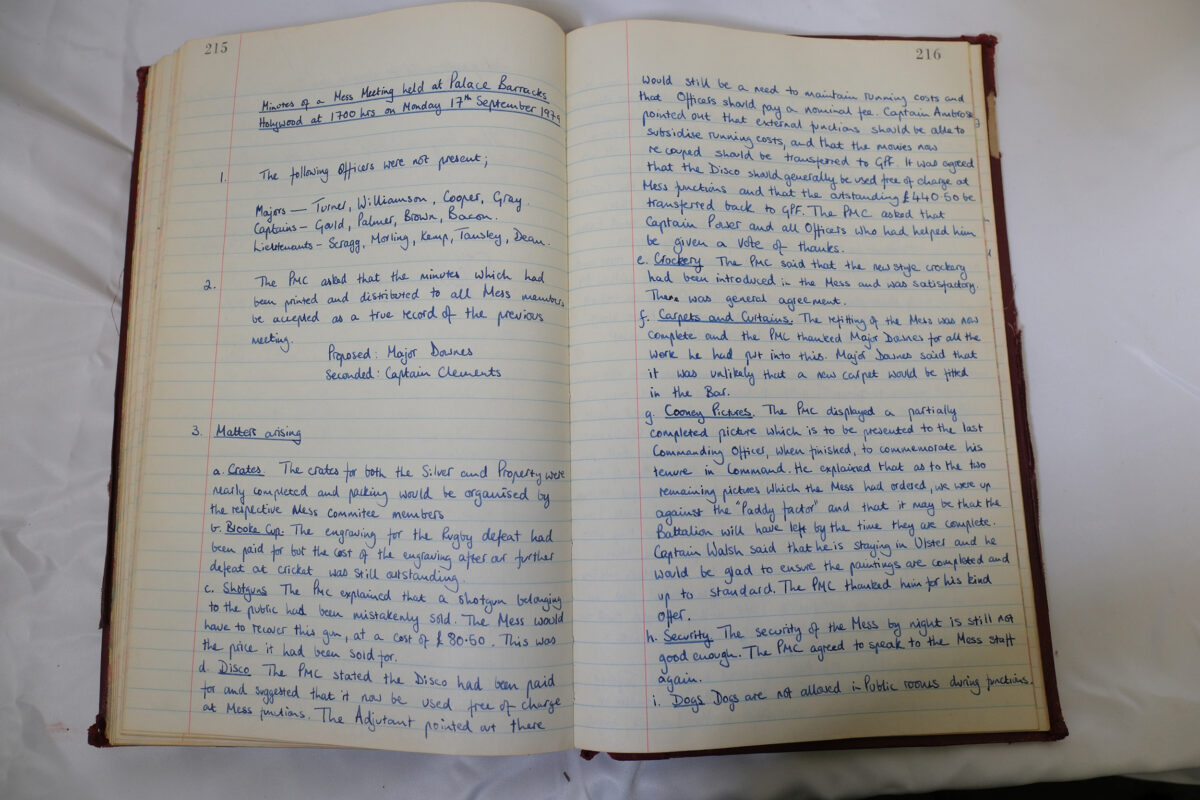 215
Minutes of a Mess Meeting held at Palace Barracks
Holywood at 1700 hrs on Monday 17th September 1979
1. The following Officers were not present;
Majors — Turner, Williamson, Cooper, Gray.
Captains - Gould, Palmer, Brown, Bacon.
Lieutenants - Scragg, Morling, Kemp, Tansley, Dean.
2. The PMC asked that the minutes which had
been printed and distributed to all Mess members
be accepted as a true record of the previous
meeting.
Proposed: Major Downes
Seconded: Captain Clements
3. Matters arising
a. Crates. The crates for both the Silver and Property were
nearly completed and packing would be organised by
the respective Mess Commitee members
b. Brooke Cup. The engraving for the Rugby defeat had
been paid for but the cost of the engraving after our further
defeat at cricket was still outstanding.
c. Shotguns The PMC explained that a shotgun belonging
to the public had been mistakenly sold. The Mess would
have to recover this gun, at a cost of £80.50. This was
the price it had been sold for.
d. Disco The PMC stated the Disco had been paid
for and suggested that it now be used free of charge
at Mess functions. The Adjutant pointed out there
216
would still be a need to maintain running costs and
that Officers should pay a nominal fee. Captain Ambrose
pointed out that external functions should be able to
subsidise running costs, and that the monies now
recouped should be transferred to GPF. It was agreed
that the Disco should generally be used free of charge at
Mess functions and that the outstanding £440.50 be
transferred back to GPF. The PMC asked that
Captain Power and all Officers who had helped him
be given a vote of thanks.
e. Crockery The PMC said that the new style crockery
had been introduced in the Mess and was satisfactory.
There was general agreement.
f. Carpets and Curtains. The refitting of the Mess was now
complete and the PMC thanked Major Downes for all the
work he had put into this. Major Downes said that
it was unlikely that a new carpet would be fitted
in the Bar.
g. Cooney Pictures. The PMC displayed a partially
completed picture which is to be presented to the last
Commanding Officer, when finished, to commemorate his
tenure in Command. He explained that as to the two
remaining pictures which the Mess had ordered, we were up
against the "Paddy factor" and that it may be that the
Battalion will have left by the time they are complete.
Captain Walsh said that he is staying in Ulster and he
would be glad to ensure the paintings are completed and
up to standard. The PMC thanked him for his kind
offer.
h. Security The security of the Mess by night is still not
good enough. The PMC agreed to speak to the Mess staff
again.
i. Dogs Dogs are not allowed in Public rooms during functions.